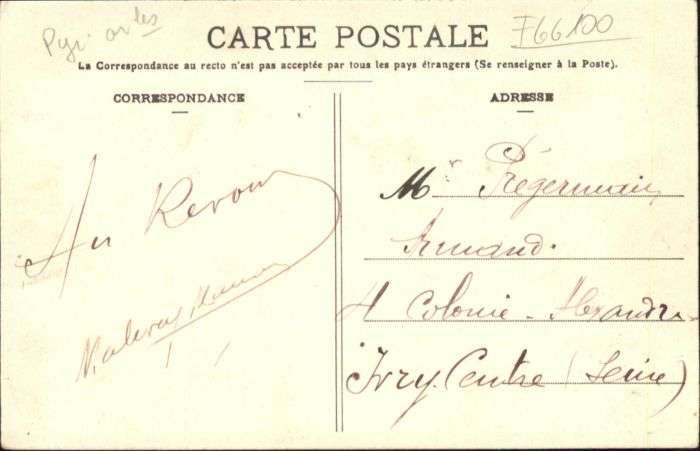 Pyr. or les
F66100
CARTE POSTALE
La Correspondance au recto n'est pas acceptée par tous les pays étrangers (Se renseigner à la Poste).
CORRESPONDANCE
ADRESSE
Au Revoir
Mr Prégermain
Armand.
4 Colonie - Alexandre
Ivry. Centre (Seine)